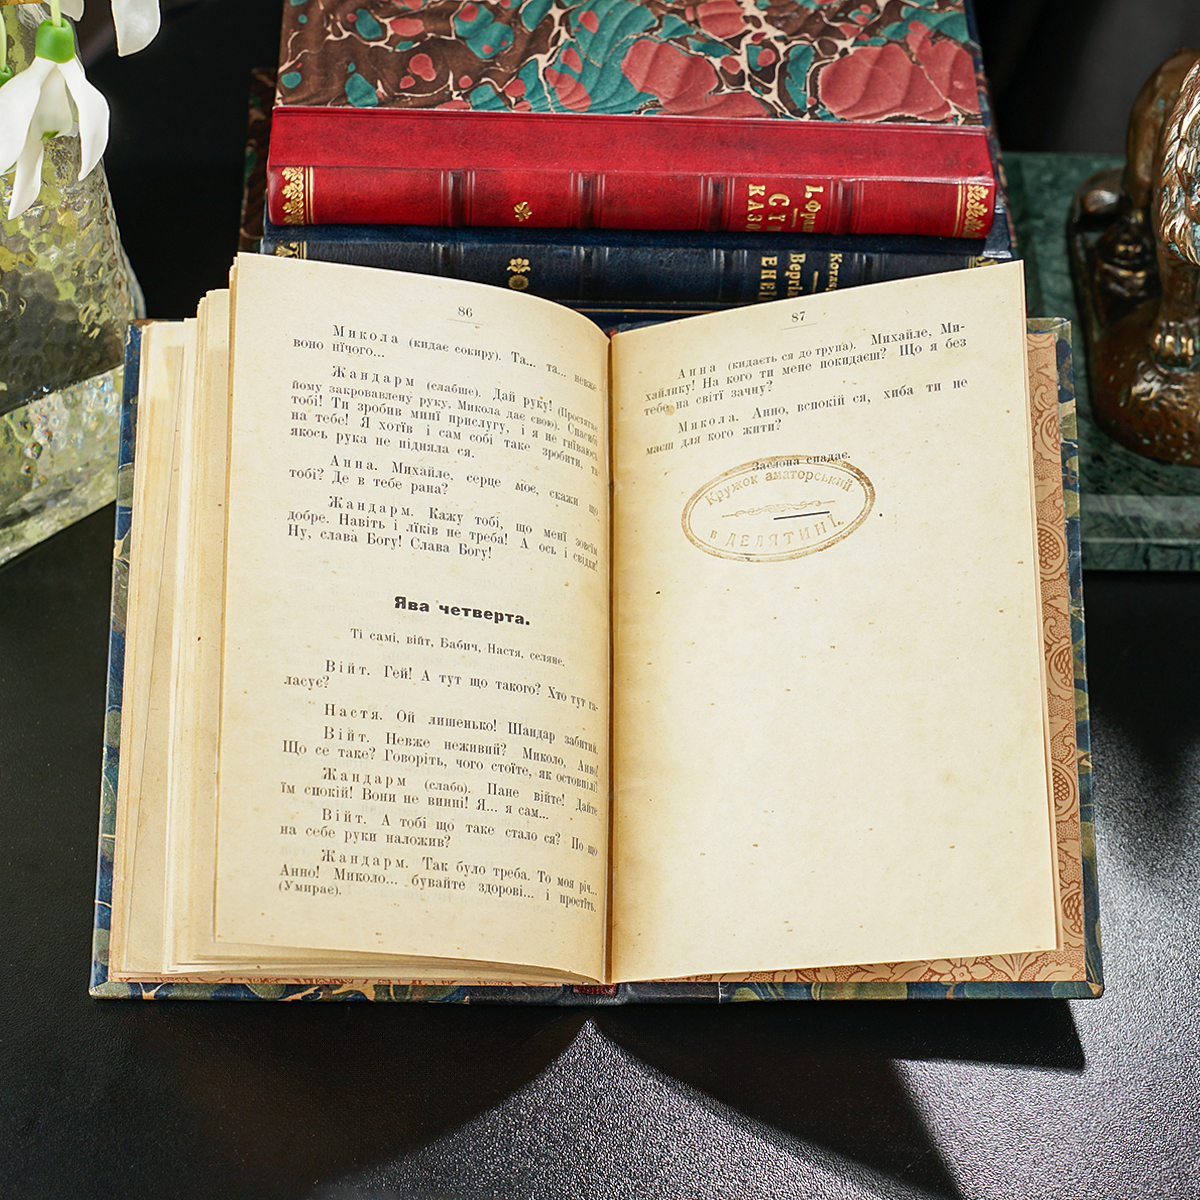 І. Фран
СТ
КАЗО
Котл
Вергіл
ЕНЕЇ
86
Микола (кидає сокиру). Та... та... невже
воно нїчого...
Жандарм (слабше). Дай руку! (Простягає
йому закровавлену руку, Микола дає свою). Спасибі
тобі! Ти зробив минї прислугу, і я не гнїваюсь
на тебе! Я хотїв і сам собі таке зробити, та
якось рука не підняла ся.
Анна. Михайле, серце моє, скажи що
тобі? Де в тебе рана?
Жандарм. Кажу тобі, що менї зовсїм
добре. Навіть і лїків не треба! А ось і свідки!
Ну, слава Богу! Слава Богу!
Ява четверта.
Ті самі, війт, Бабич, Настя, селяне.
Війт. Гей! А тут що такого? Хто тут га-
ласує?
Настя. Ой лишенько! Шандар забитий.
Війт. Невже неживий? Миколо, Анно!
Що се таке? Говоріть, чого стоїте, як остовпілі!
Жандарм (слабо). Пане війте! Дайте
їм спокій! Вони не винні! Я... я сам...
Війт. А тобі що таке стало ся? По що
на себе руки наложив?
Жандарм. Так було треба. То моя річ...
Анно! Миколо... бувайте здорові... і простїть.
(Умирає).
87
Анна (кидаєть ся до трупа). Михайле, Ми-
хайлику! На кого ти мене покидаєш? Що я без
тебе на світї зачну?
Микола. Анно, вспокій ся, хиба ти не
маєш для кого жити?
Заслона спадає.
Кружок аматорський
в ДЕЛЯТИНІ.